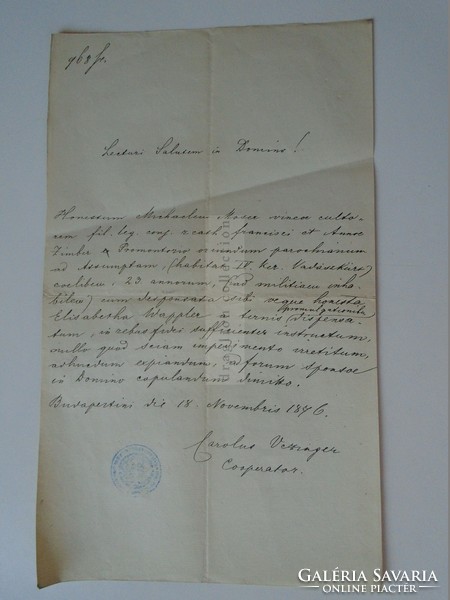 Lecturi Salutem in Domino!
Honestum Michaelem Mosce vineae culto-
rem fil. leg. conj. Francisci et Annae
Zimber e Promontorio oriundum parochianum
ad Assumptam, (habitac. IV. Ker. Vadászkürt)
coelibem, 23 annorum, (ad militiam inha-
bilem) cum desponsata sibi aeque honesta
Elisabetha Wappler a ternis promulgationib. dispensa-
tum, in rebus fidei sufficienter instructum,
nullo quod sciam impedimento irretitum,
adhucdum expiandum, ad forum Sponsae
in Domino copulandum dimitto.
Budapestini die 18. Novembris 1876.
Carolus
Cooperator.
GALÉRIA SAVARIA
ONLINE PIACTÉR